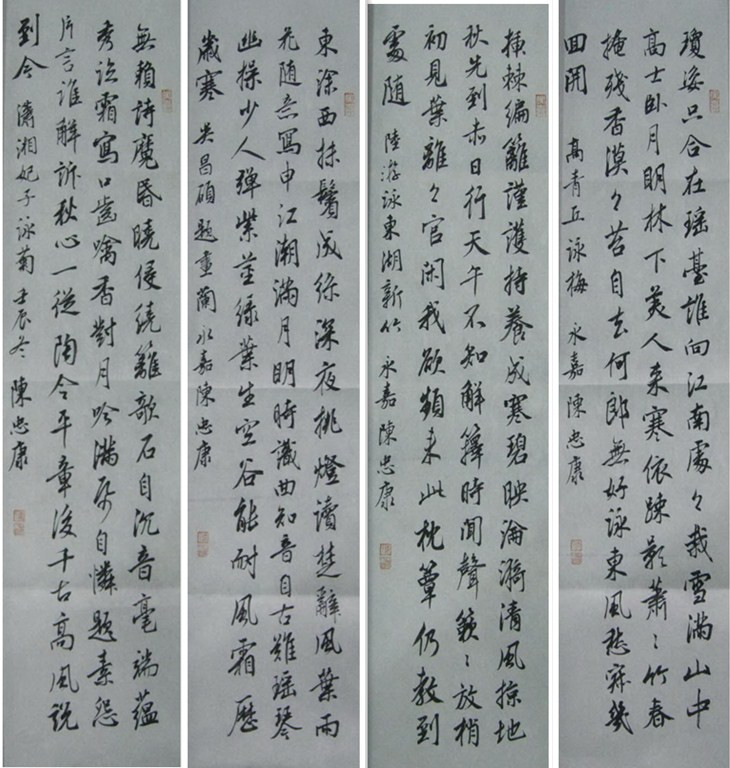 瓊姿只合在瑤臺誰向江南處々栽雪滿山中
高士臥月明林下美人來寒依疎影蕭〻竹春
掩殘香漠々苔自去何郎無好詠東風愁寂幾
回開 高青丘詠梅 永嘉陳忠康
插棘編籬謹護持養成寒碧映淪漪清風掠地
秋先到赤日行天午不知解籜時聞聲簌〻放梢
初見葉離々官閑我欲頻來此枕簟仍教到
處隨 陸游詠東湖新竹 永嘉陳忠康
東塗西抹鬢成絲深夜挑燈讀楚辭風葉雨
花隨意寫申江潮滿月明時識曲知音自古難瑤琴
幽操少人彈紫莖綠葉生空谷能耐風霜歷
歲寒 吳昌碩題畫蘭永嘉陳忠康
無賴詩魔昏曉侵繞籬欹石自沉音毫端蘊
秀臨霜寫口齒噙香對月吟滿紙自憐題素怨
片言誰解訴秋心一從陶令平章後千古高風說
到今 瀟湘妃子詠菊 壬辰冬 陳忠康